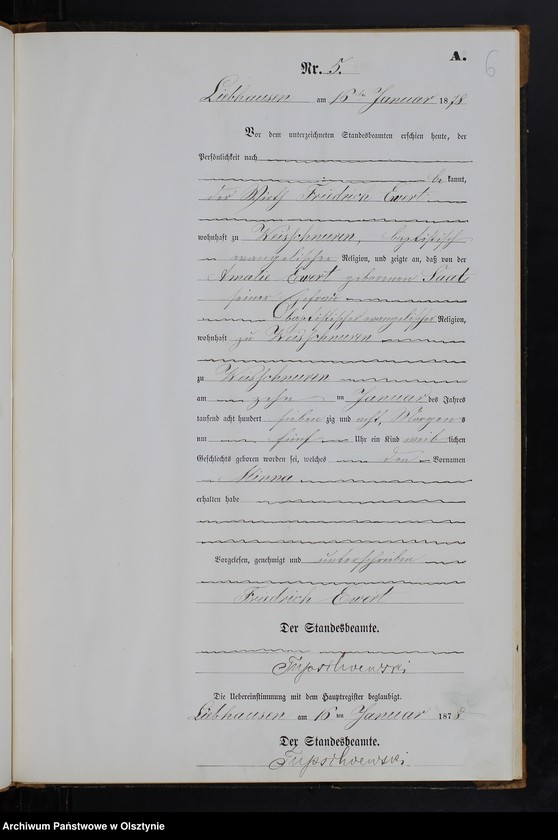 A.
6
Nr. 5.
Liebhausen am 16ten Januar 1878
Vor dem unterzeichneten Standesbeamten erschien heute, der
Persönlichkeit nach
bekannt,
der Wirth Friedrich Ewert
wohnhaft zu Weisschnuren, baptistisch
evangelischer Religion, und zeigte an, daß von der
Amalie Ewert geborenen
seiner Ehefrau
baptistischer evangelischer Religion,
wohnhaft zu Weisschnuren
zu Weisschnuren
am zehn ten Januar des Jahres
tausend acht hundert sieben zig und acht, Morgens
um fünf Uhr ein Kind weiblichen
Geschlechts geboren worden sei, welches den Vornamen
Minna
erhalten habe
Vorgelesen, genehmigt und unterschrieben
Friedrich Ewert
Der Standesbeamte.
Die Uebereinstimmung mit dem Hauptregister beglaubigt.
Liebhausen am 16ten Januar 1878
Der Standesbeamte.
Archiwum Państwowe w Olsztynie